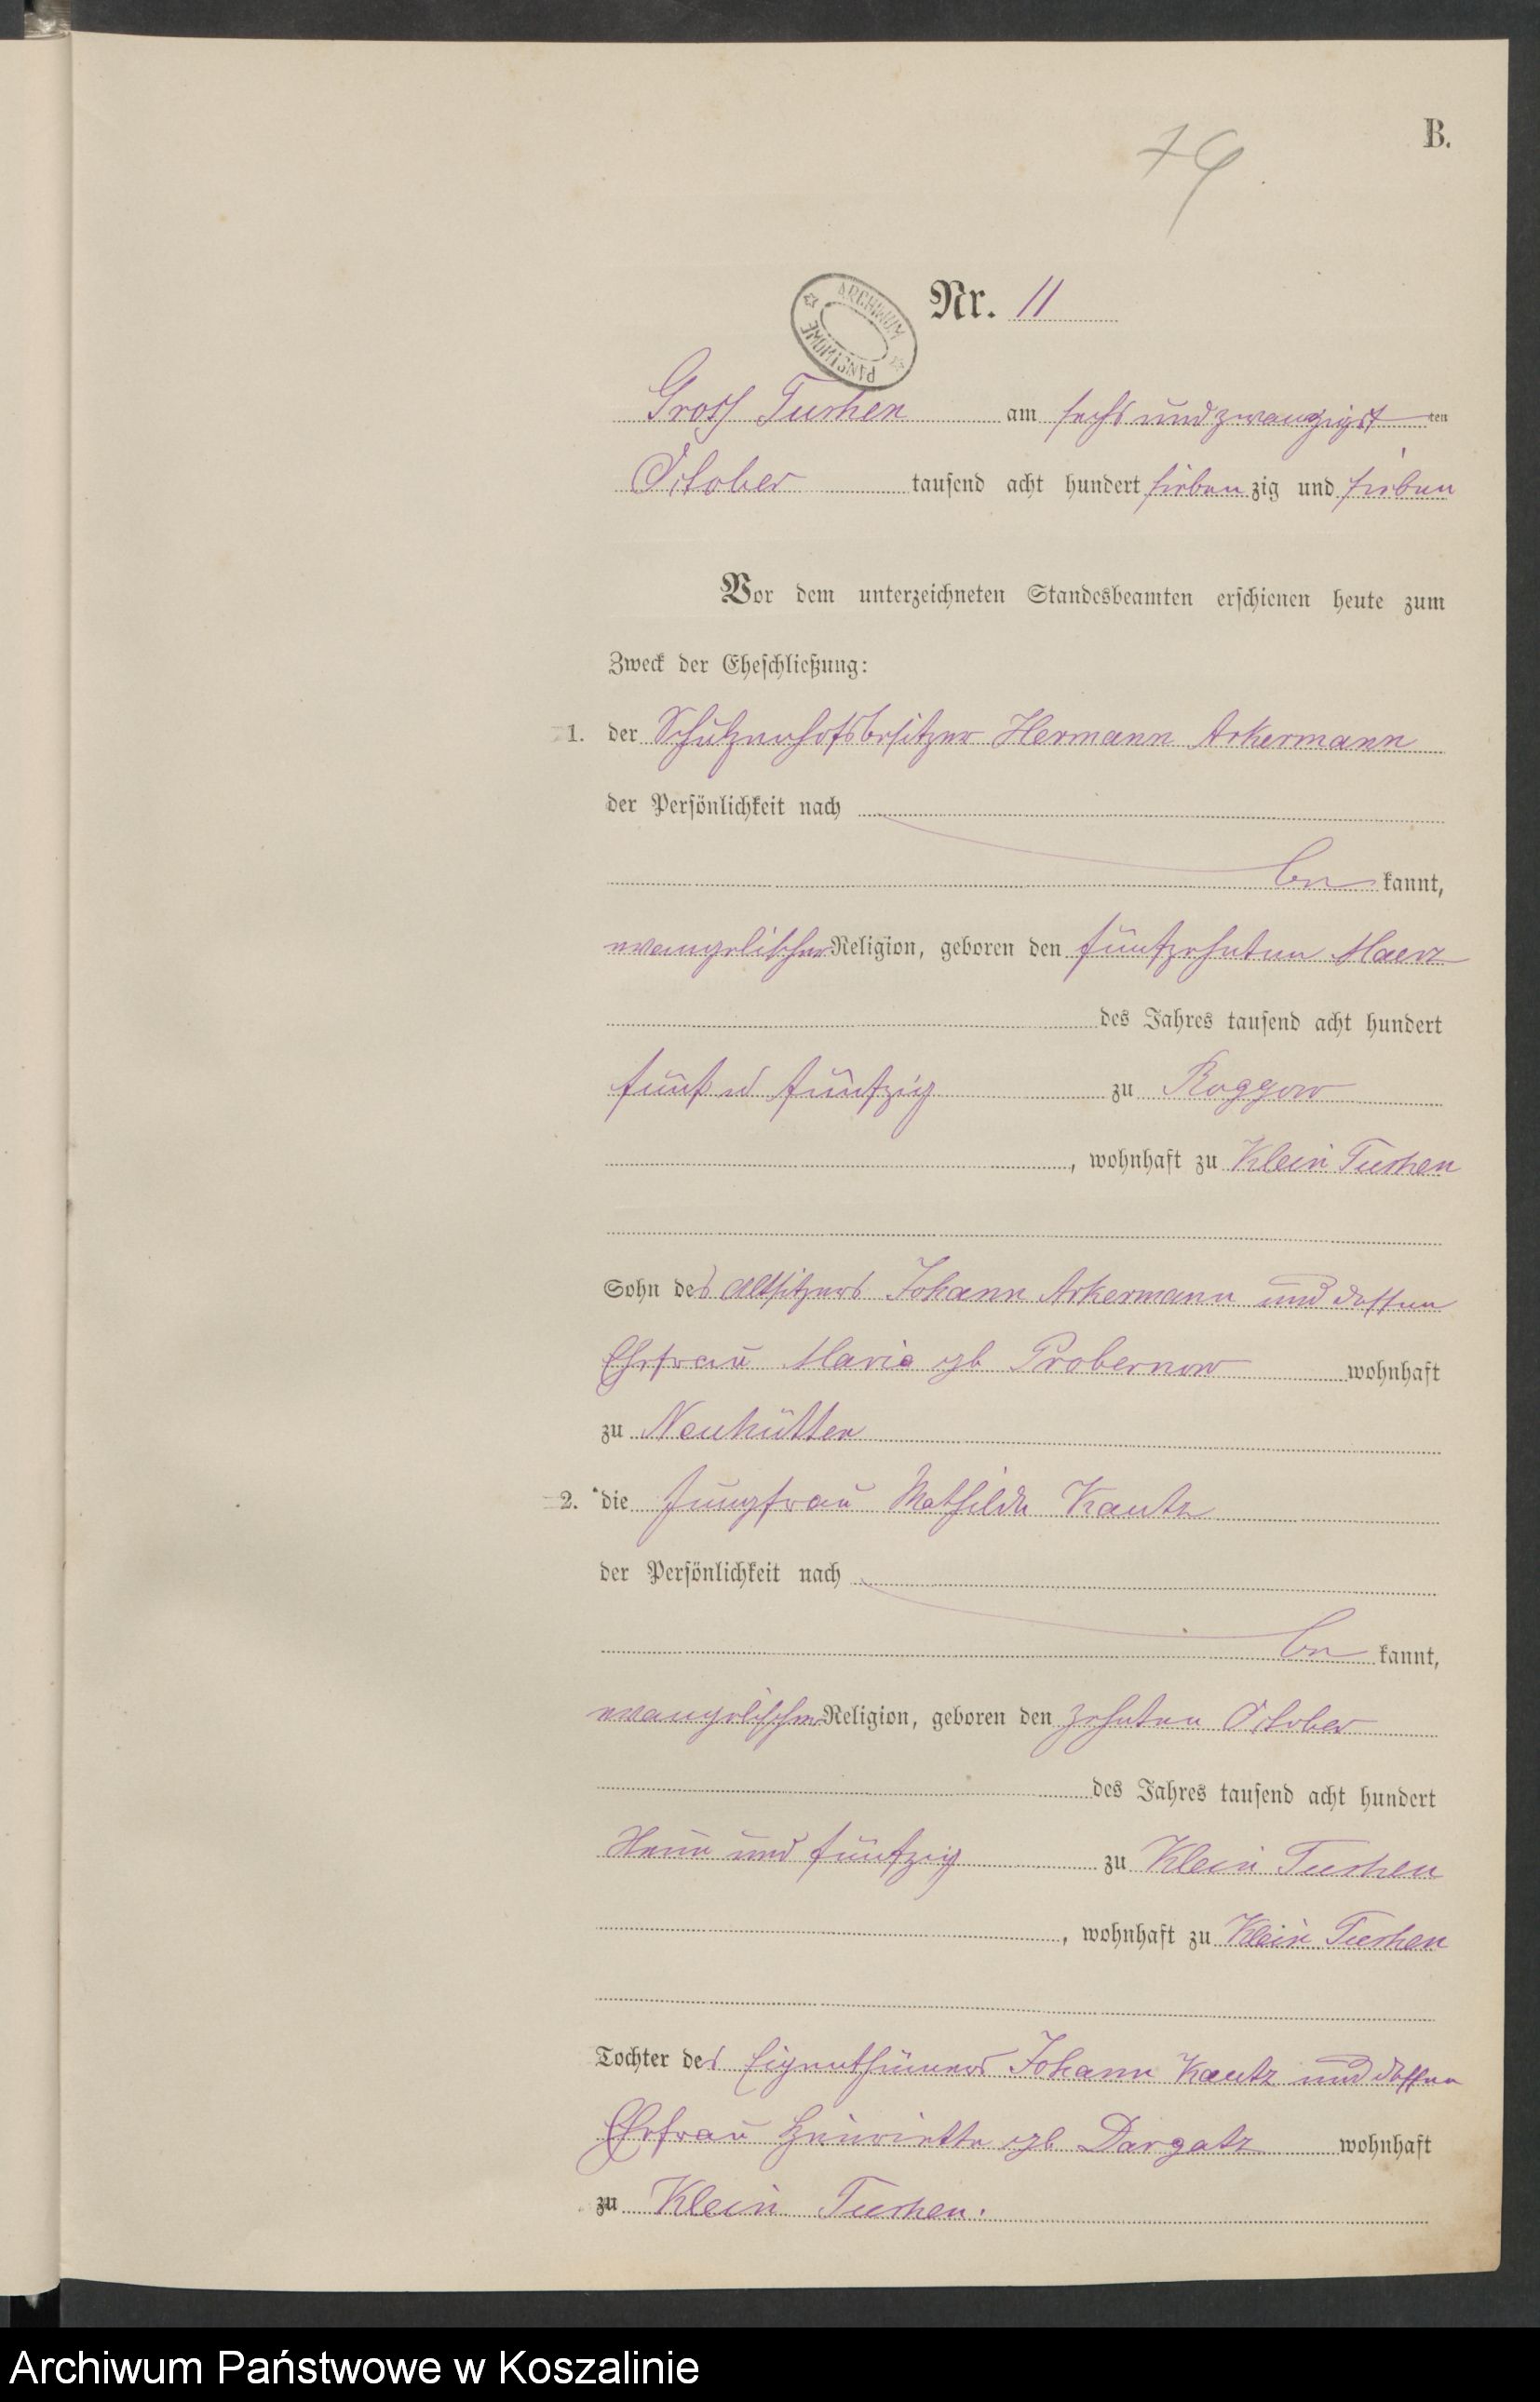 B.
79.
ARCHIWUM PAŃSTWOWE
Nr. 11
Gross Tuchen am sechs und zwanzigst ten
October tausend acht hundert sieben zig und sieben
Vor dem unterzeichneten Standesbeamten erschienen heute zum
Zweck der Eheschließung:
1. der Schulzenhofsbesitzer Hermann Ackermann
der Persönlichkeit nach
be kannt,
evangelischer Religion, geboren den fünfzehnten Maerz
des Jahres tausend acht hundert
fünf u fünfzig zu Roggow
, wohnhaft zu Klein Tuchen
Sohn des Altsitzers Johann Ackermann und dessen
Ehefrau Marie geb Probernow wohnhaft
zu Neuhütten
2. die Jungfrau Mathilde Kautz
der Persönlichkeit nach
be kannt,
evangelischer Religion, geboren den zehnten October
des Jahres tausend acht hundert
Neun und fünfzig zu Klein Tuchen
, wohnhaft zu Klein Tuchen
Tochter des Eigenthümers Johann Kautz und dessen
Ehefrau Henriette geb Dargatz wohnhaft
zu Klein Tuchen.
Archiwum Państwowe w Koszalinie